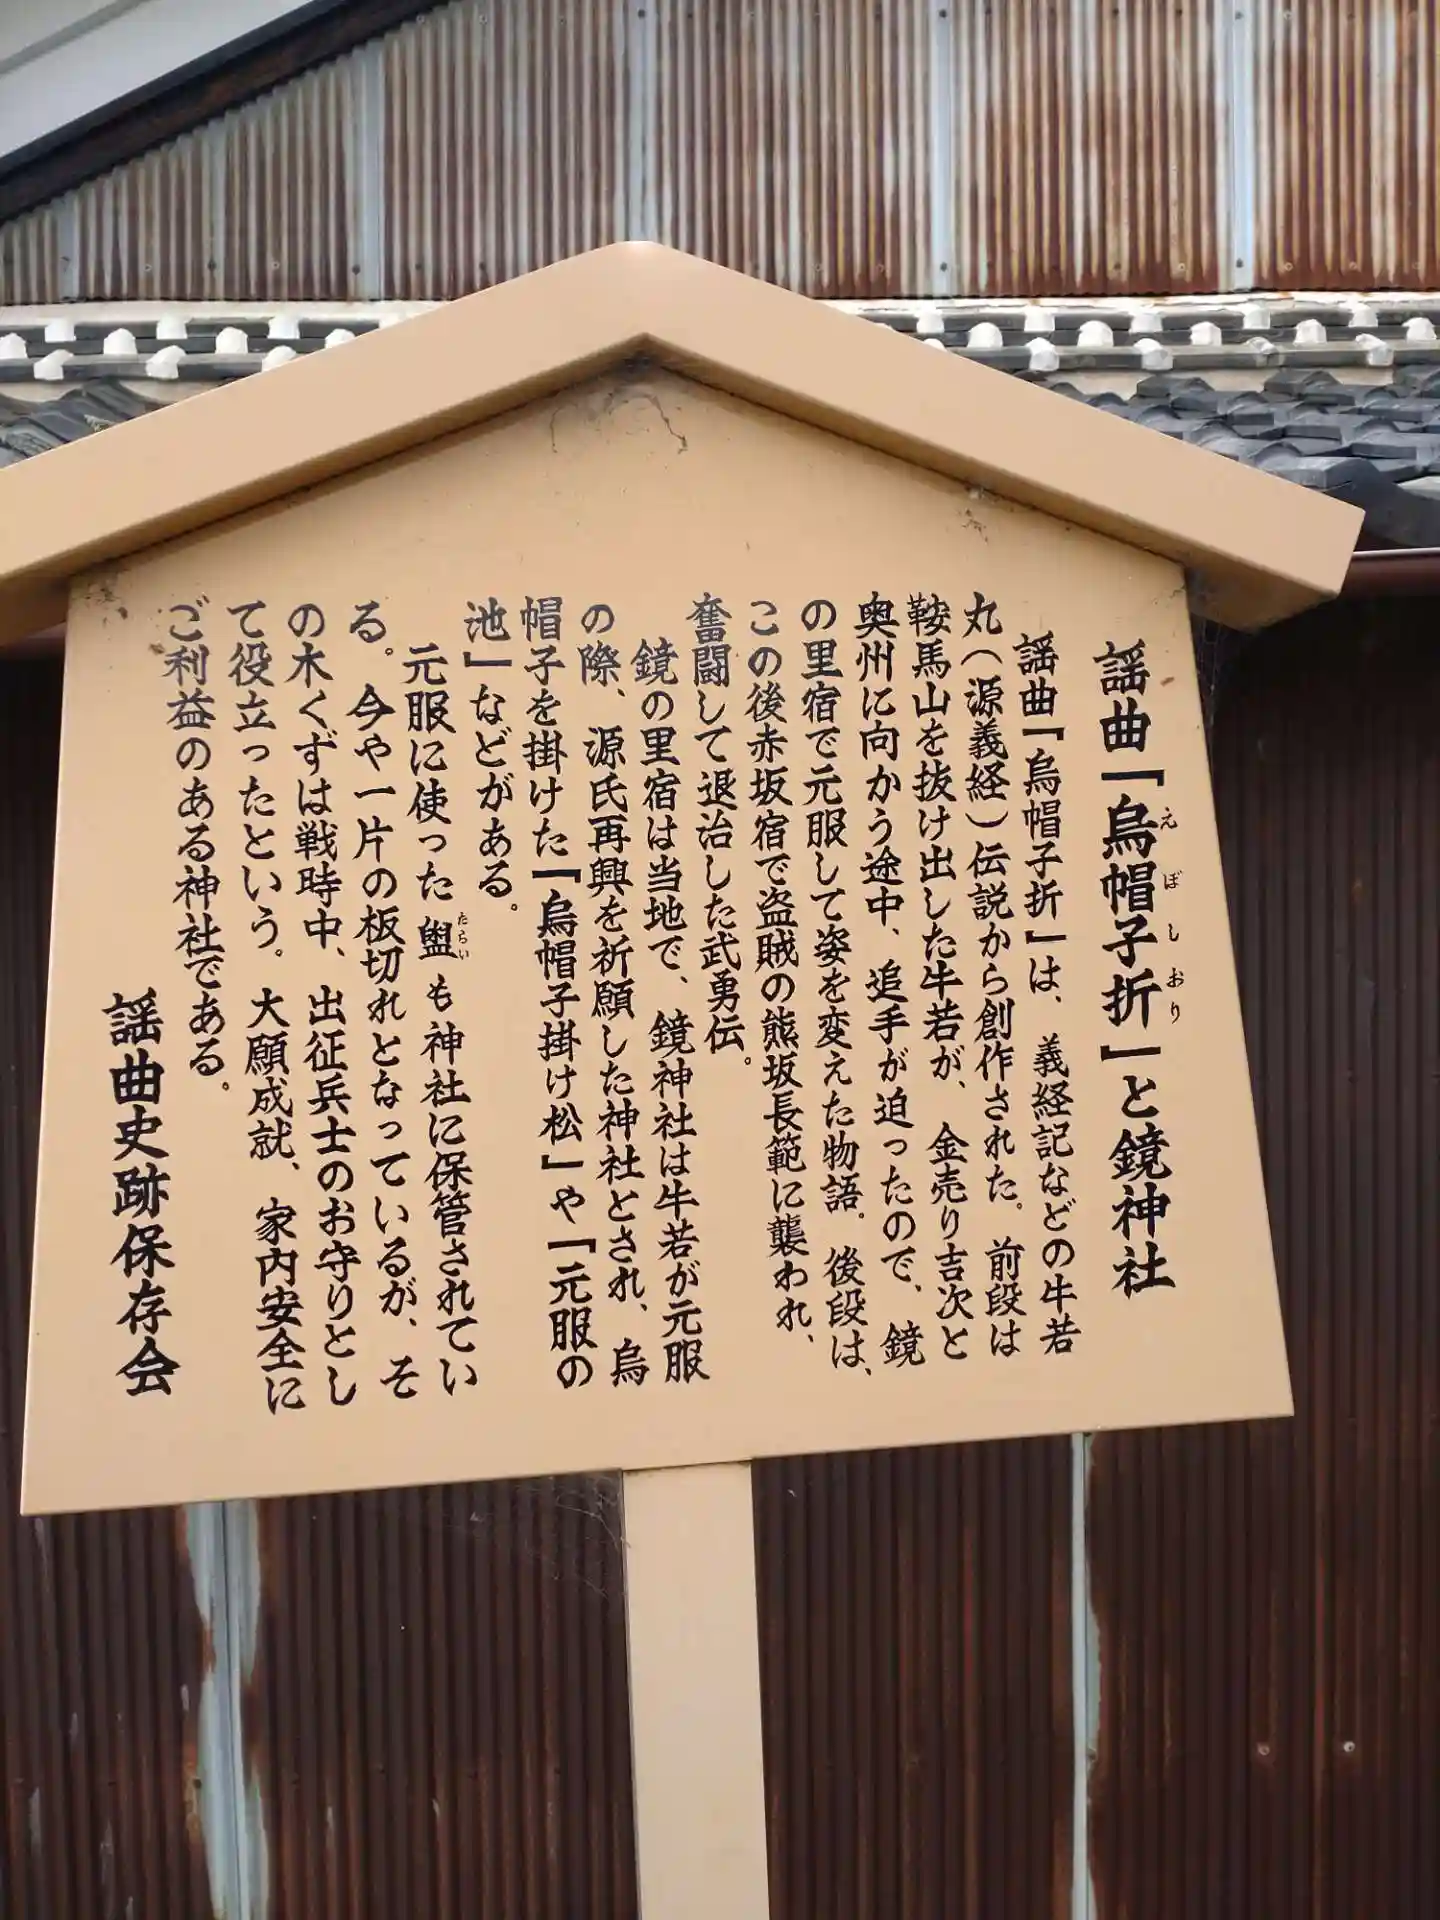 謡曲「烏帽子折」と鏡神社
えぼしおり
謡曲「烏帽子折」は、義経記などの牛若
丸(源義経)伝説から創作された。前段は
鞍馬山を抜け出した牛若が、金売り吉次と
奥州に向かう途中、追手が迫ったので、鏡
の里宿で元服して姿を変えた物語。後段は、
この後赤坂宿で盗賊の熊坂長範に襲われ、
奮闘して退治した武勇伝。
鏡の里宿は当地で、鏡神社は牛若が元服
の際、源氏再興を祈願した神社とされ、烏
帽子を掛けた「烏帽子掛け松」や「元服の
池」などがある。
元服に使った盥も神社に保管されてい
たらい
る。今や一片の板切れとなっているが、そ
の木くずは戦時中、出征兵士のお守りとし
て役立ったという。大願成就、家内安全に
ご利益のある神社である。
謡曲史跡保存会